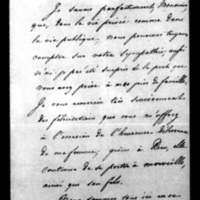 Je savais parfaitement, Monsieur,
que, dans la vie privée comme dans
la vie publique, nous pouvions toujours
compter sur votre sympathie, aussi
n'ai-je pas été surpris de la part que
vous avez prise à nos joies de famille.
Je vous remercie très sincèrement
des félicitations que vous m'offrez
à l'occasion de l'heureuse délivrance
de ma femme, grâce à Dieu, elle
continue de se porter à merveille
ainsi que son fils.
Nous sommes tous ici